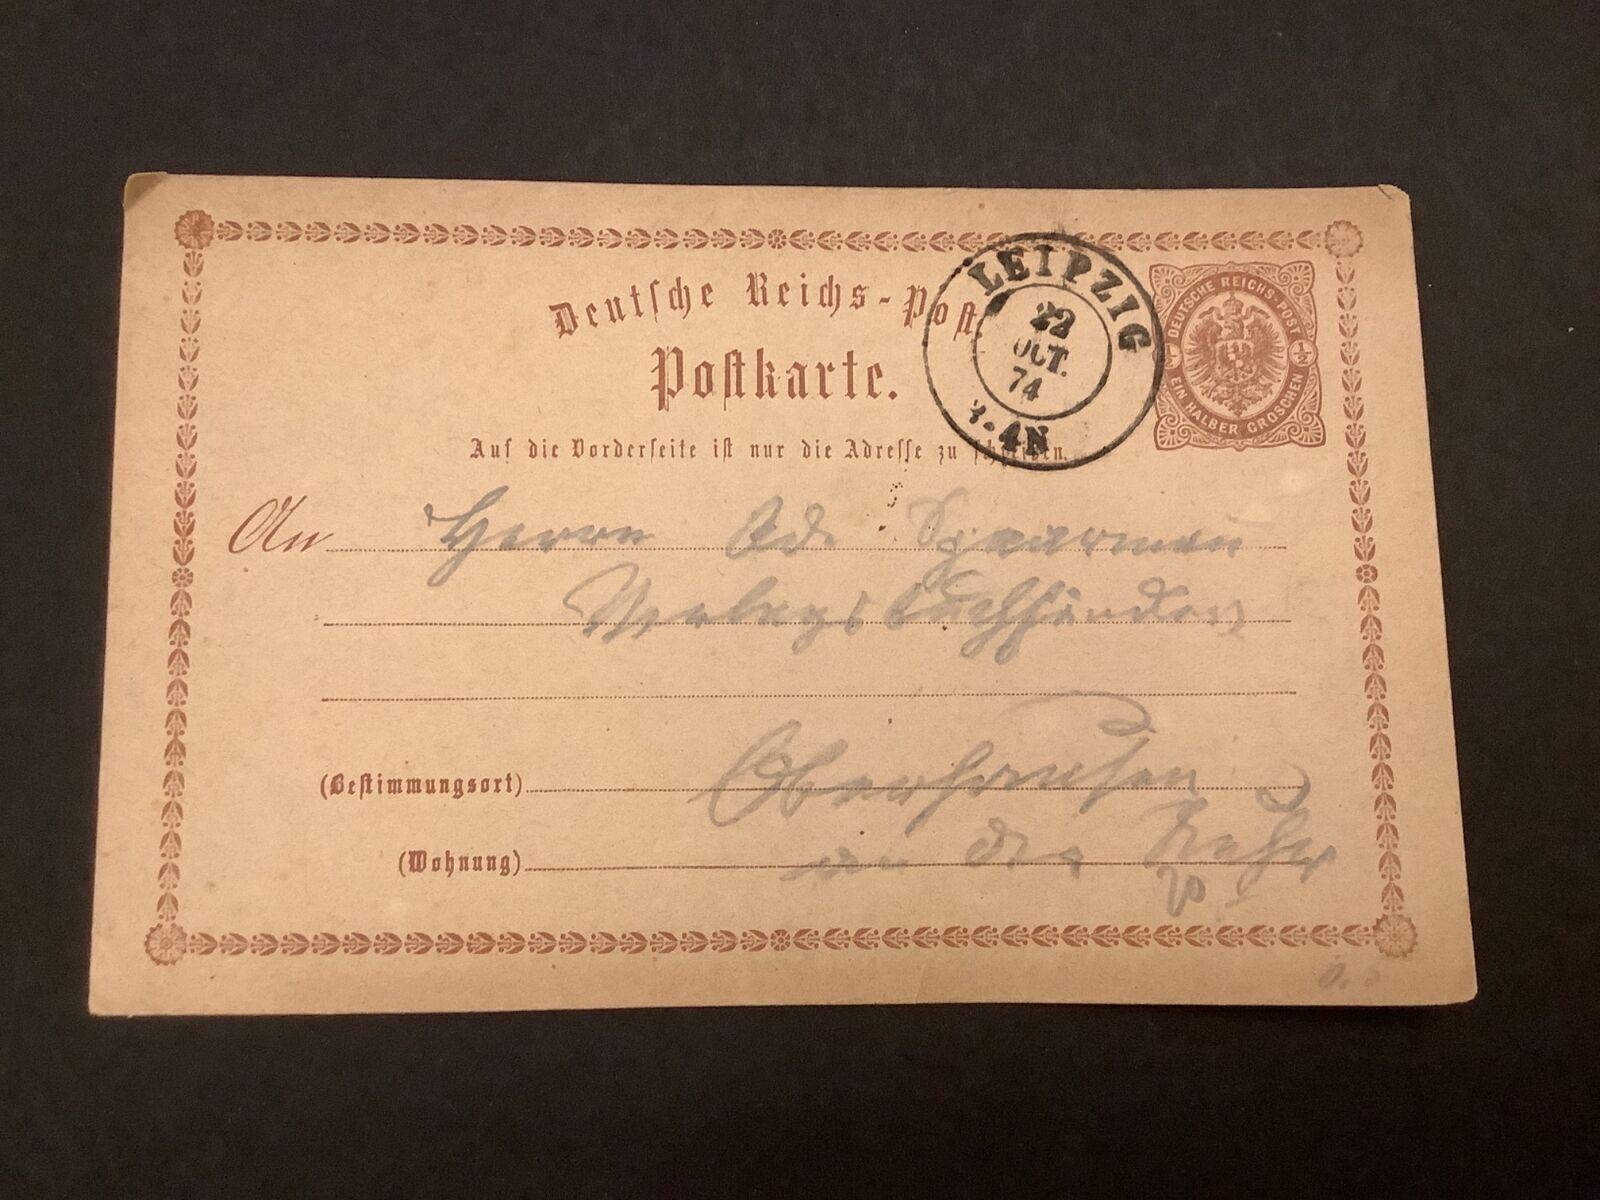 Deutsche Reichs-Post
Postkarte.
LEIPZIG
22
OCT.
74
3-4N
DEUTSCHE REICHS-POST
½ ½
EIN HALBER GROSCHEN
Auf die Vorderseite ist nur die Adresse zu schreiben.
An Herrn Ad. Spaarmann
Verlagsbuchhändler
(Bestimmungsort) Oberhausen
(Wohnung) an der Ruhr